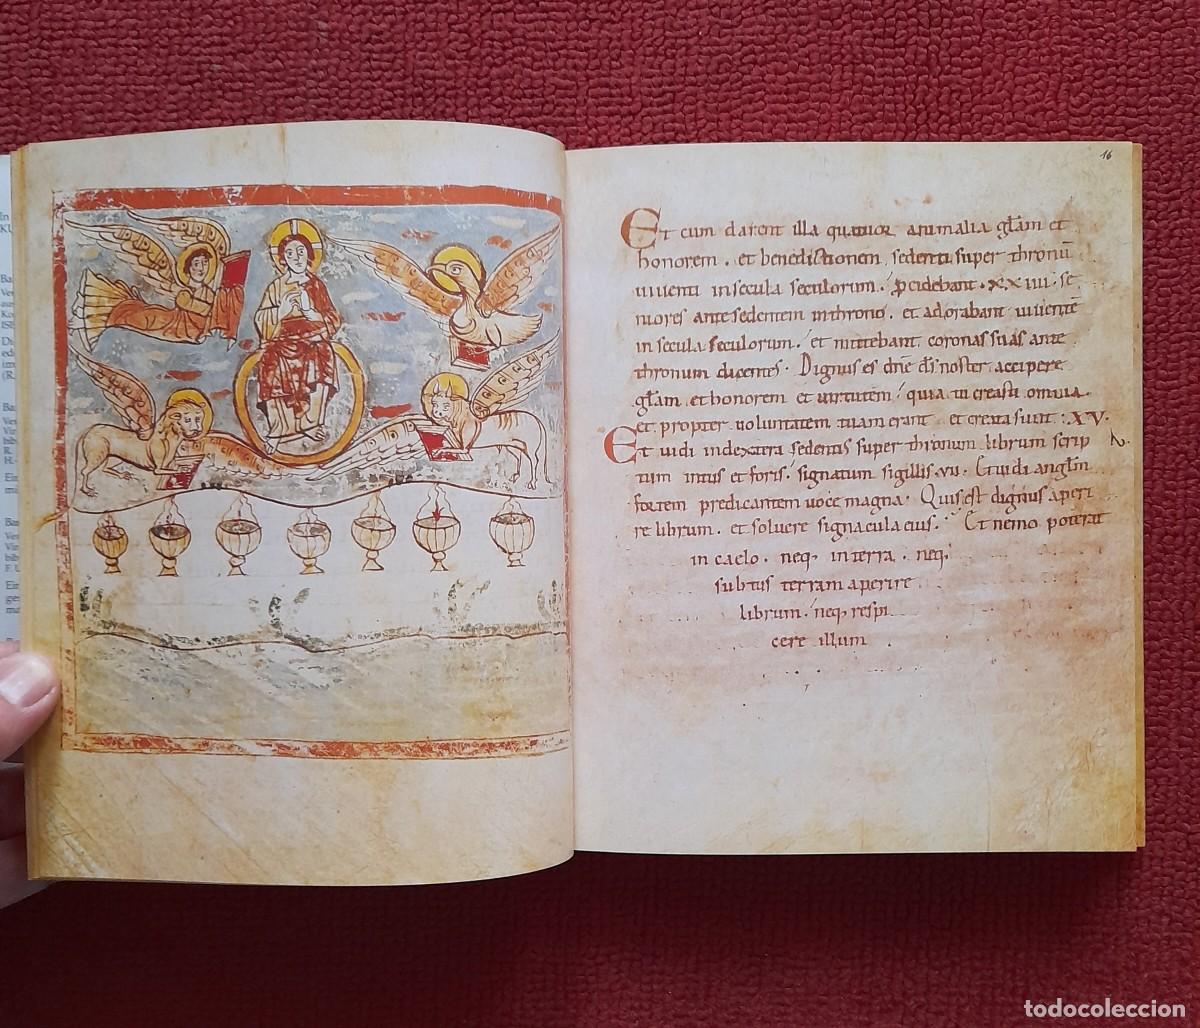 16
Et cum darent illa quatuor animalia gl̄am et
honorem . et benedictionem sedenti super thronū
uiuenti in secula seculorum . p̄cidebant . XXIIII . se
niores ante sedentem in throno . et adorabant uiuentē
in secula seculorum . et mittebant coronas suas ante
thronum dicentes . Dignus es dn̄e d̄s noster accipere
gl̄am et honorem et uirtutem . quia tu creasti omnia
et propter uoluntatem tuam erant et creata sunt : XV .
Et uidi in dextera sedentis super thronum librum scrip
tum intus et foris . signatum sigillis . VII . Et uidi angl̄m
fortem predicantem uoce magna . Quis est dignus aperi
re librum . et soluere signacula eius . Et nemo poterat
in caelo . neq; in terra . neq;
subtus terram aperire
librum . neq; respi
cere illum
todocoleccion